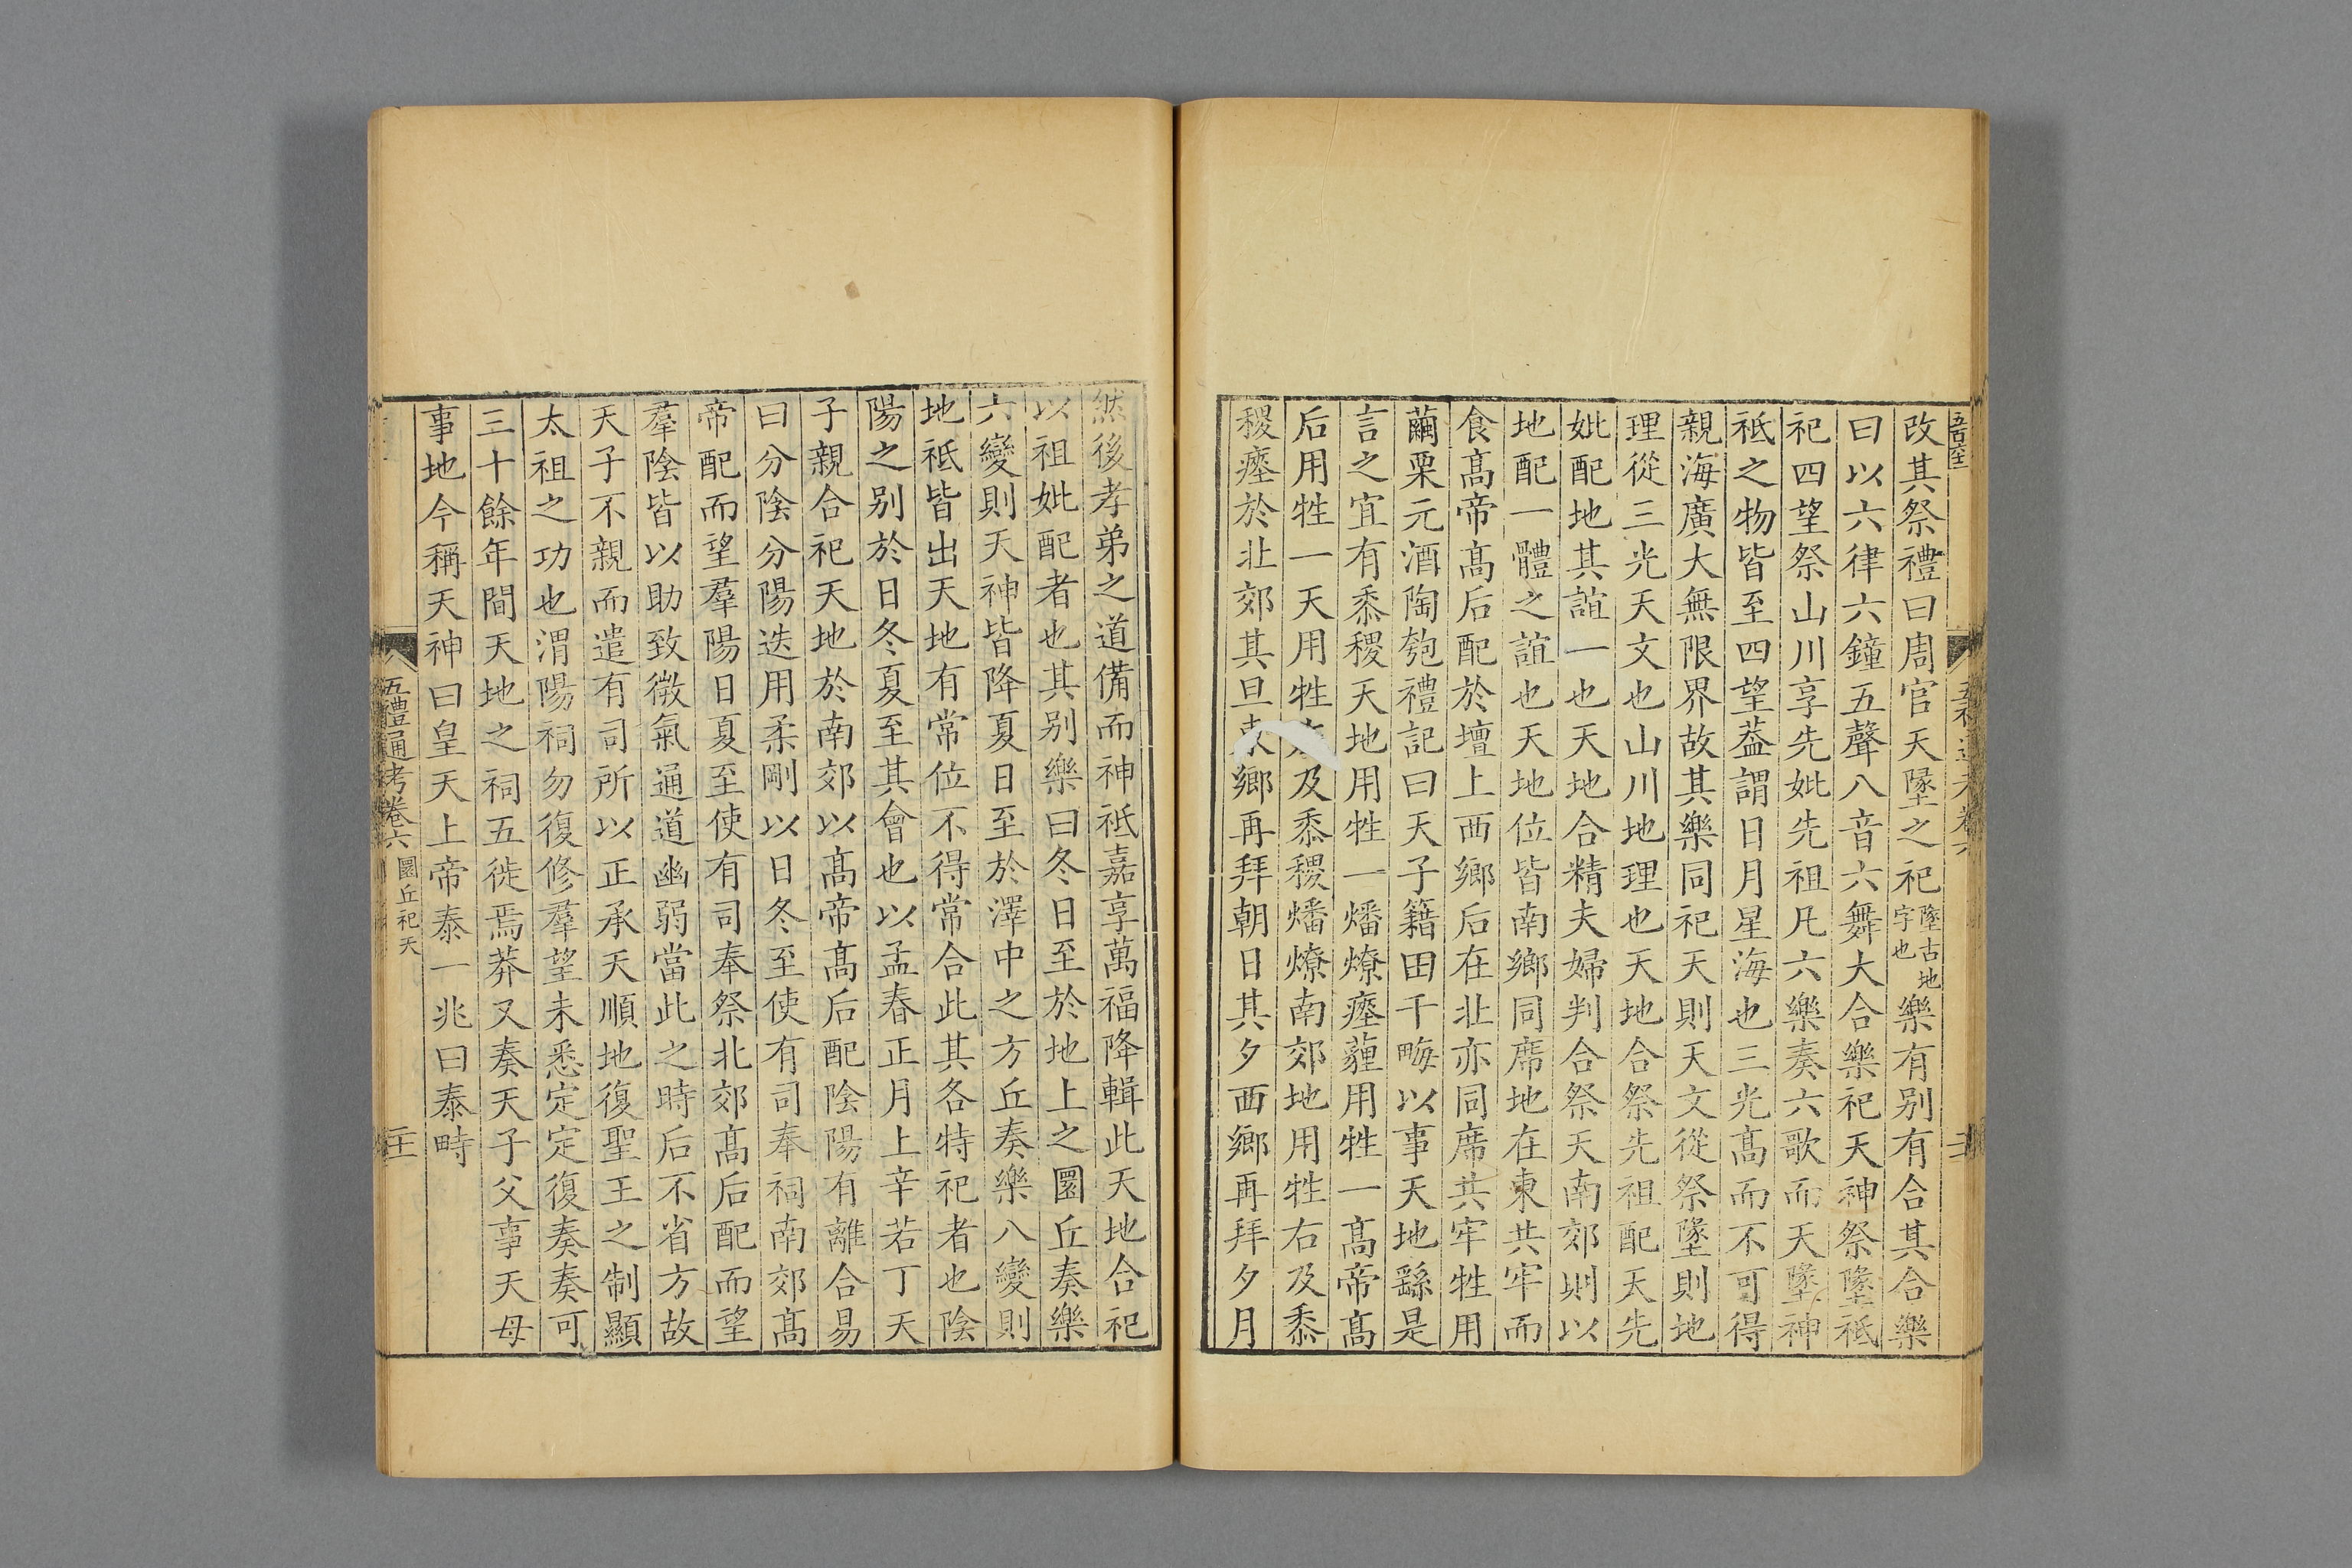 改其祭禮曰周官天墬之祀墬古地字也樂有别有合其合樂
曰以六律六鐘五聲八音六舞大合樂祀天神祭墬祗
祀四望祭山川享先妣先祖凡六樂奏六歌而天墬神
祗之物皆至四望葢謂日月星海也三光髙而不可得
親海廣大無限界故其樂同祀天則天文從祭墬則地
理從三光天文也山川地理也天地合祭先祖配天先
妣配地其誼一也天地合精夫婦判合祭天南郊則以
地配一體之誼也天地位皆南鄉同席地在東共牢而
食髙帝髙后配於壇上西鄉后在北亦同席共牢牲用
繭栗元酒陶匏禮記曰天子籍田千畮以事天地繇是
言之宜有黍稷天地用牲一燔燎瘞薶用牲一髙帝髙
后用牲一天用牲及黍稷燔燎南郊地用牲右及黍
稷瘞於北郊其旦鄉再拜朝日其夕西鄉再拜夕月
然後孝弟之道備而神祗嘉享萬福降輯此天地合祀
以祖妣配者也其别樂曰冬日至於地上之圜丘奏樂
六變則天神皆降夏日至於澤中之方丘奏樂八變則
地祗皆出天地有常位不得常合此其各特祀者也陰
陽之别於日冬夏至其會也以孟春正月上辛若丁天
子親合祀天地於南郊以髙帝髙后配陰陽有離合易
曰分陰分陽迭用柔剛以日冬至使有司奉祠南郊髙
帝配而望羣陽日夏至使有司奉祭北郊髙后配而望
羣陰皆以助致微氣通道幽弱當此之時后不省方故
天子不親而遣有司所以正承天順地復聖王之制顯
太祖之功也渭陽祠勿復修羣望未悉定定復奏奏可
三十餘年間天地之祠五徙焉莽又奏天子父事天母
事地今稱天神曰皇天上帝泰一兆曰泰畤
五禮通考卷六 圜丘祀天